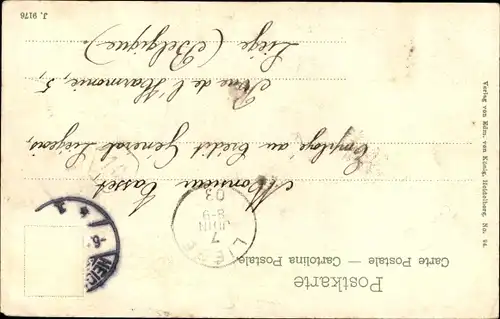 Postkarte
Carte Postale — Cartolina Postale
Monsieur Casset
Employé au Crédit Général Liégeois,
Rue de l'Harmonie, 5,
Liège (Belgique).
Verlag von Edm. von König, Heidelberg. No. 94.
J. 9176
7
JUIN
8-9
03